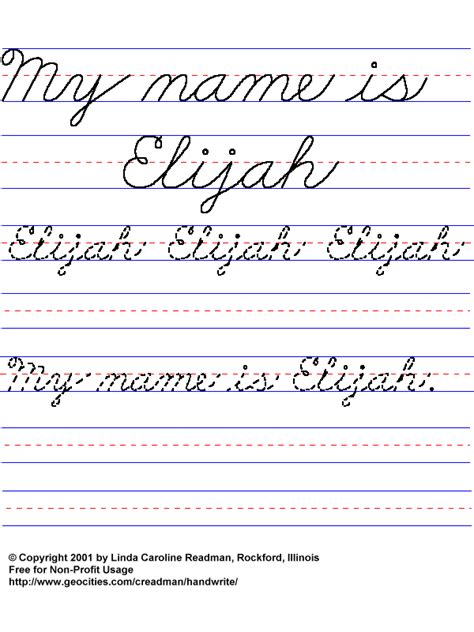 My name is
Elijah
Elijah Elijah Elijah
My name is Elijah.
© Copyright 2001 by Linda Caroline Readman, Rockford, Illinois
Free for Non-Profit Usage
http://www.geocities.com/creadman/handwrite/